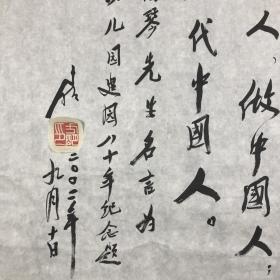 人，做中國人；
代中國人。
琴先生名言为
幼儿园建园八十年纪念题
二〇〇二年
九月十日